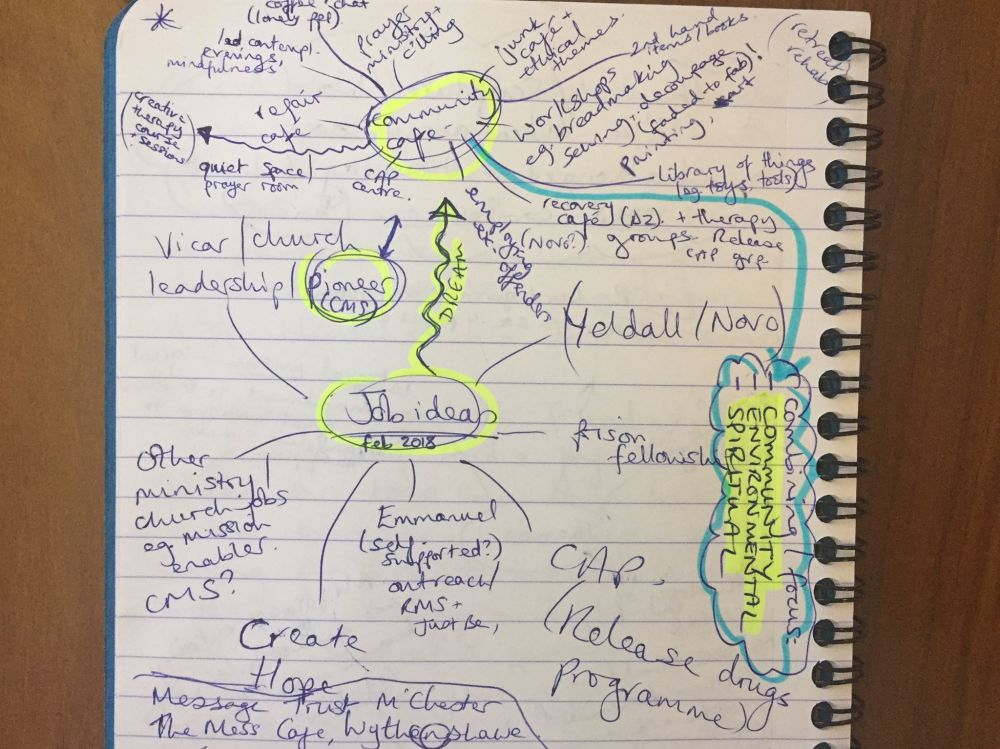 coffee + chat
(lonely ppl)
led contempl.
evenings,
mindfulness,
prayer
ministry +
chilling
junk
cafe +
ethical
themes.
2nd hand
items/books
(retreat/
rehab)
community
cafe
repair
cafe
(creative
therapy
course
sessions)
quiet space/
prayer room
CAP
centre.
workshops
eg. breadmaking
sewing, decoupage
(faded to fab)!
painting, art
library of things
(eg toys, tools)
recovery
cafe (A2) + therapy
(Novo?) groups. Release
CAP grp.
employing
ex. offenders
Vicar/church
leadership/
Pioneer
(CMS)
DREAM
(Yeldall/Novo)
Job ideas
feb 2018
Prison
fellowship
combining/focus:
COMMUNITY
ENVIRONMENTAL
SPIRITUAL
Other
ministry/
church jobs
eg mission
enabler.
CMS?
Emmanuel
(self-
supported?)
outreach/
RMS +
Just Be,
CAP.
(Release drugs
programme)
Create
Hope
Message Trust M'Chester
The Mess Cafe, Wythenshawe